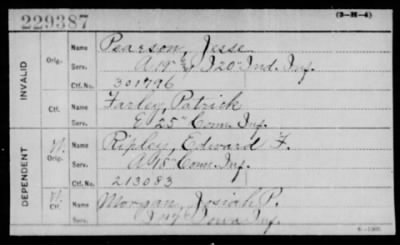 229387
(3-H-4)
INVALID
Orig.
Name Pearson, Jesse
Serv. A 19" & I 20" Ind. Inf.
Ctf. No. 301796
Ctf.
Name Farley, Patrick
Serv. E 25" Conn. Inf.
DEPENDENT
W. Orig.
Name Ripley, Edward F.
Serv. A 18" Conn. Inf.
Ctf. No. 213083
W. Ctf.
Name Morgan, Josiah P.
Serv. Iowa Inf.